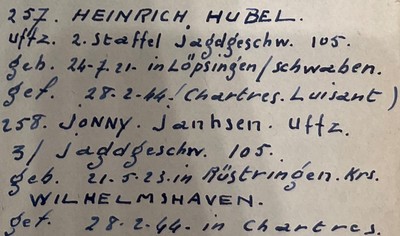 257. HEINRICH. HUBEL.
Uffz. 2. Staffel Jagdgeschw. 105.
geb. 24-7.21- in Löpsingen/schwaben.
gef. 28-2-44! Chartres. Luisant)
258. JONNY. Janhsen. Uffz.
3/ Jagdgeschw. 105.
geb. 21-5-23. in Rüstringen. Krs.
WILHELMSHAVEN.
gef. 28-2-44- in Chartres.